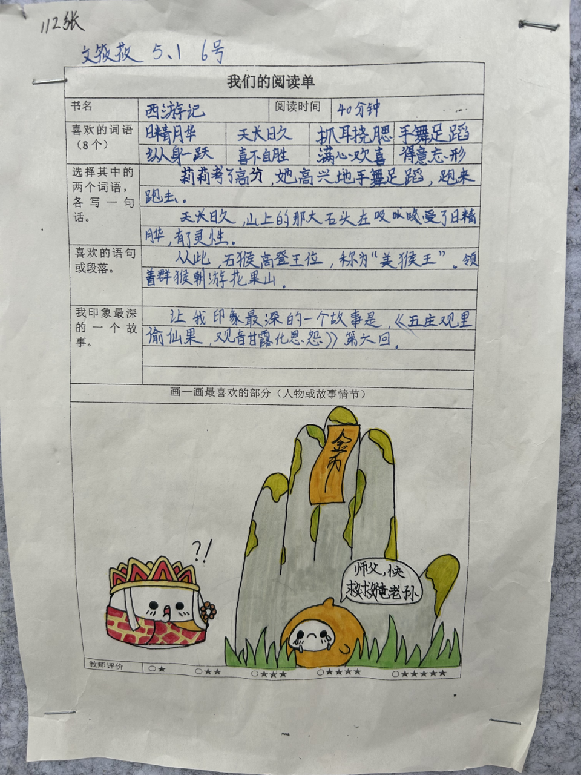 112张
5.1 6号
我们的阅读单
书名 西游记 阅读时间 40分钟
喜欢的词语 日精月华 天长日久 抓耳挠腮 手舞足蹈
(8个) 纵身一跃 喜不自胜 满心欢喜 得意忘形
选择其中的两个词语,各写一句话。
莉莉考了高分,她高兴地手舞足蹈,跑来
跑去。
天长日久,山上的那大石头在吸收
日精
月华,有了灵性。
喜欢的语句或段落。
从此,石猴高登王位,称为“美猴王”。领
着群猴 游花果山。
我印象最深的一个故事。
让我印象最深的一个故事是,《五庄观里
偷仙果,观音甘露化恩怨》第六回。
画一画最喜欢的部分(人物或故事情节)
金币
?!
师父,快
救救俺老孙
教师评价 ○★ ○★★ ○★★★ ○★★★★ ○★★★★★